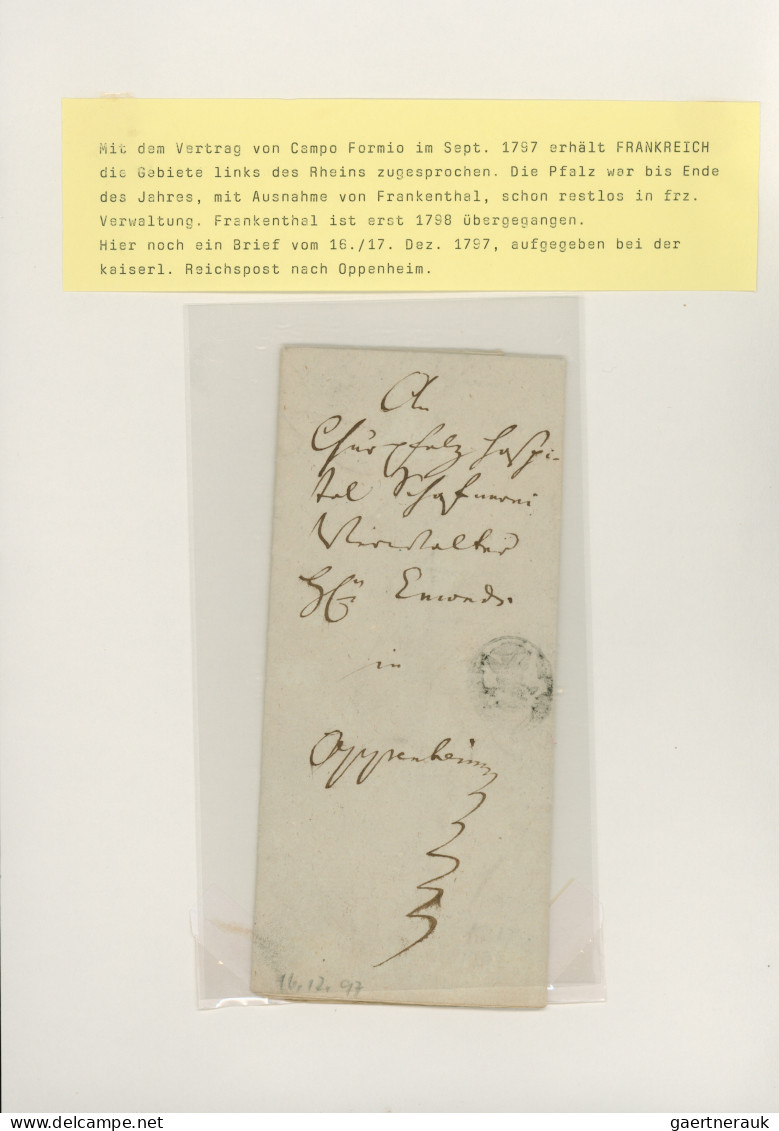 Mit dem Vertrag von Campo Formio im Sept. 1797 erhält FRANKREICH
die Gebiete links des Rheins zugesprochen. Die Pfalz war bis Ende
des Jahres, mit Ausnahme von Frankenthal, schon restlos in frz.
Verwaltung. Frankenthal ist erst 1798 übergegangen.
Hier noch ein Brief vom 16./17. Dez. 1797, aufgegeben bei der
kaiserl. Reichspost nach Oppenheim.
An
Churpfalz Hospi-
tal Schafnerei
Verwalter
in
Oppenheim
16.12.97
gaertnerauk